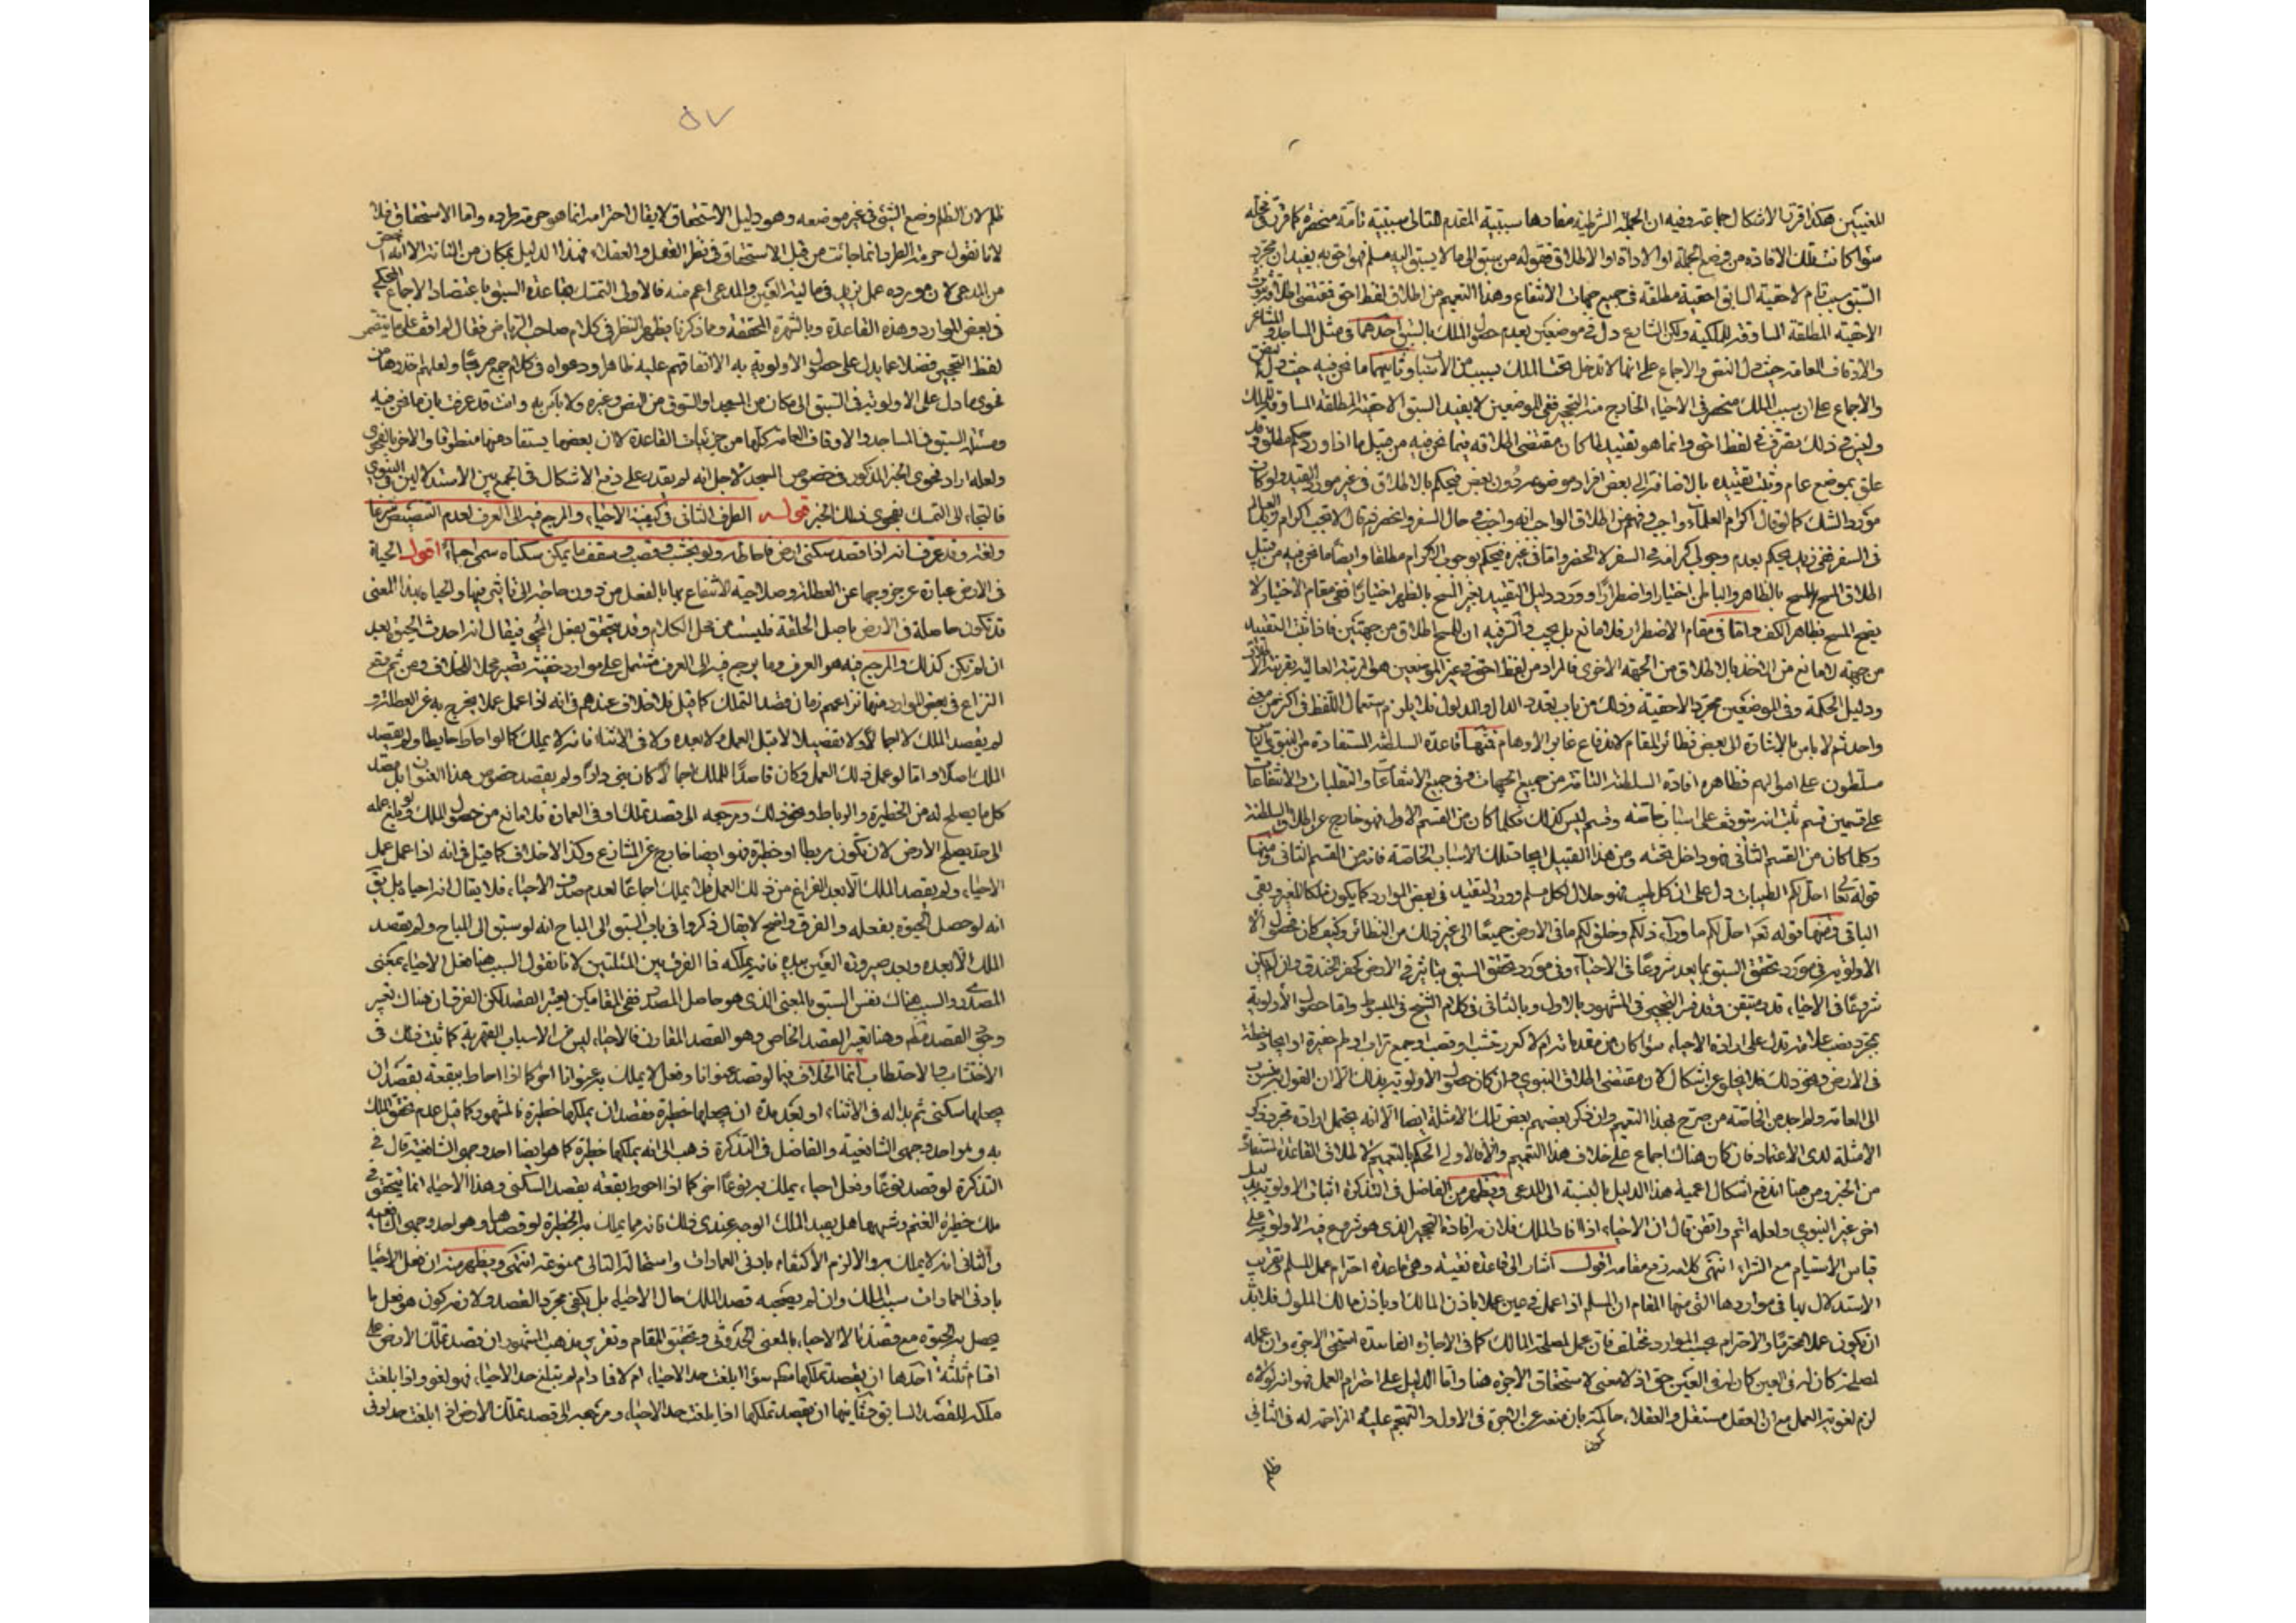 للغيبين هكذا قرت الاشكال جماعة وفيه ان الجملة الشرطية مفادها سببية المقدم للتالى سببية تامة منحصرة كما قرر فى محله
سواء كانت تلك الافادة من وضع الجملة او الاداة او الاطلاق فقوله من سبق الى ما لا يسبق اليه مسلم فهو احق به يفيد ان مجرد
السبق سبب تام لاحقية السابق احقية مطلقة فى جميع جهات الانتفاع وهذا التعميم من اطلاق لفظ احق فمقتضى اطلاقه ثبوت
الاحقية المطلقة المساوقة للملكية ولكن الشارع دل فى موضعين بعدم حصول الملك بالسبق احدهما فى مثل المساجد والمشاعر
والاوقاف العامة حيث دل النص والاجماع على انها لا تدخل تحت الملك بسبب من الاسباب وثانيهما ما نحن فيه حيث دل النص
والاجماع على ان سبب الملك منحصر فى الاحياء الخارج منه التحجير ففى الموضعين لا يفيد السبق الاحقية المطلقة المساوقة للملك
وليس فى ذلك تصرف فى لفظ احق وانما هو تقييد لما كان مقتضى اطلاقه فيما نحن فيه من قبيل ما اذا ورد حكم مطلق وقد
علق بموضع عام وثبت تقييده بالاضافة الى بعض افراد موضوعه دون بعض فيحكم بالاطلاق فى غير مورد القيد ولو كان
مورد الشك كما لو قال اكرام العلماء واجب وفهم من اطلاق الواجب انه واجب فى حال السفر والحضر ثم قال لا يجب اكرام زيد العالم
فى السفر ففى زيد يحكم بعدم وجوب اكرامه فى السفر لا الحضر واما فى غيره فيحكم بوجوب الاكرام مطلقا وايضا ما نحن فيه من قبيل
اطلاق المسح المسح بالظاهر والباطن اختيارا واضطرارا وورد دليل التقييد بغير المسح بالظهر اختيارا ففى مقام الاختيار لا
يصح المسح بظاهر الكف واما فى مقام الاضطرار فلا مانع بل يجب والسر فيه ان للمسح اطلاق من جهتين فاذا ثبت التقييد
من جهة لا مانع من الاخذ بالاطلاق من الجهة الاخرى فالمراد من لفظ احق فى غير الموضعين هو المرتبة العالية بقرينة الاطلاق
ودليل الحكمة وفى الموضعين مجرد الاحقية وذلك من باب تعدد الدال والمدلول فلا يلزم استعمال اللفظ فى اكثر من معنى
واحد ثم لا باس بالاشارة الى بعض نظائر المقام لاندفاع غائر الاوهام فمنها قاعدة السلطنة المستفادة من النبوى الناس
مسلطون على اموالهم فظاهره افادة السلطنة التامة من جميع الجهات وفى جميع الانتفاعات والتقلبات والانتفاعات
على قسمين قسم ثبت انه يتوقف على اسباب خاصة وقسم ليس كذلك فكلما كان من القسم الاول فهو خارج عن اطلاق السلطنة
وكلما كان من القسم الثانى فهو داخل تحته ومن هذا القبيل ايجاد تلك الاسباب الخاصة فانه من القسم الثانى ومنها
قوله تعا احل لكم الطيبات دل على ان كل طيب فهو حلال لكل مسلم وورد التقييد فى بعض الموارد كما يكون ملكا للغير وبقى
الباقى ومنها قوله تعا احل لكم ما وراء ذلكم وخلق لكم ما فى الارض جميعا الى غير ذلك من النظائر وكيف كان فحصول
الاولوية فى مورد تحقق السبق بما يعد شروعا فى الاحياء وفى مورد تحقق السبق بتاثير فى الارض كحفر الخندق وان لم يكن
شروعا فى الاحياء قد متيقن وقد فسر التحجير فى المشهور بالاول وبالثانى فى كلام الشيخ فى المبسوط واما حصول الاولوية
بمجرد نصب علامة تدل على ارادة الاحياء سواء كان من مقدماته ام لا كغرز خشب او قصب او جمع تراب او طم حفيرة او ايجاد خط
فى الارض ونحو ذلك فلا يخلو عن اشكال لان مقتضى اطلاق النبوى وان كان حصول الاولوية بذلك الا ان القول به نسب
الى العامة ولم اجد من الخاصة من صرح بهذا التعميم وان ذكر بعضهم بعض تلك الامثلة ايضا الا انه يحتمل ارادة مجرد ذكر
الامثلة لدى الاعتياد فان كان هناك اجماع على خلاف هذا التعميم والا فالاولى الحكم بالتعميم لاطلاق القاعدة المستفادة
من الخبر ومن هنا اندفع اشكال اعمية هذا الدليل بالنسبة الى المدعى ويظهر من الفاضل فى التذكرة اثبات الاولوية بدليل
اخر غير النبوى ولعله اتم واتقن قال ان الاحياء اذا افاد الملك فلا بد من افادة التحجير الذى هو شروع فيه الاولوية على
قياس الاستيام مع الشراء انتهى كلامه رفع مقامه اقول اشار الى قاعدة نفيسة وهى قاعدة احترام عمل المسلم وتقريب
الاستدلال بها فى مواردها التى منها المقام ان المسلم اذا عمل فى عين عملا باذن المالك او باذن مالك الملوك فلابد
ان يكون عمله محترما والاحترام بحسب الموارد مختلف فان عمل لمصلحة المالك كما فى الاجارة الفاسدة استحق الاجرة وان عمله
لمصلحته كان له فى العين كان له فى العين حق اذ لا معنى لاستحقاق الاجرة هنا واما الدليل على احترام العمل فهو انه لولاه
لزم لغوية العمل مع ان العقل مستقل والعقلاء حاكمة بان منعه عن الاجرة فى الاول والتهجم عليه المزاحمة له فى الثانى
ظلم
٥٧
ظلم لان الظلم وضع الشئ فى غير موضعه وهو دليل الاستحقاق لا يقال احترامه انما هو حرمة طرده واما الاستحقاق فلا
لانا نقول حرمة الطرد انما جائت من قبل الاستحقاق فى نظر العقل والعقلاء فهذا الدليل بمكان من المتانة الا انه اخص
من المدعى لان مورده عمل يزيد فى مالية العين والمدعى اعم منه فالاولى التمسك بقاعدة السبق باعتضاد الاجماع المحكى
فى بعض الموارد وهذه القاعدة وبالشهرة المحققة ومما ذكرنا يظهر النظر فى كلام صاحب الرياض فقال لم اقف على ما يتضمن
لفظ التحجير فضلا عما يدل على حصول الاولوية به الا اتفاقهم عليه ظاهرا ودعواه فى كلام جمع صريحا ولعلهم اخذوها من
فحوى ما دل على الاولوية فى السبق الى مكان من المسجد او السوق من النص وغيره ولا باس به وانت قد عرفت بان ما نحن فيه
ومسئلة السبق فى المساجد والاوقاف العامة كلها من جزئيات القاعدة لا ان بعضها يستفاد منها منطوقا والاخر بالفحوى
ولعله اراد فحوى الخبر المذكور فى خصوص المسجد لاجل انه لم يقدر على دفع الاشكال فى الجمع بين الاستدلالين فى النبوى
فالتجاء الى التمسك بفحوى ذلك الخبر قوله الطرف الثانى فى كيفية الاحياء والمرجع فيه الى العرف لعدم التنصيص شرعا
ولغة وقد عرف انه اذا قصد سكنى ارض فاحاط ولو بخشب او قصب وسقف مما يمكن سكناه سمى احياء اقول الحياة
فى الارض عبارة عن خروجها عن العطلة وصلاحية الانتفاع بها بالفعل من دون حاجة الى تاثير فيها والحياة بهذا المعنى
قد تكون حاصلة فى الارض باصل الخلقة فليست من محل الكلام وقد يتحقق بفعل المحيى فيقال انه احدث الحيوة بعد
ان لم يكن كذلك والمرجع فيه هو العرف وما يرجع فيه الى العرف مشتمل على موارد خفية تصير محل الخلاف ومن ثم يقع
النزاع فى بعض الموارد منها نزاعهم زمان قصد التملك كما قيل بلا خلاف عندهم فى انه اذا عمل عملا يخرج به عن العطلة و
لم يقصد الملك لا اجمالا ولا تفصيلا لا قبل العمل ولا بعده ولا فى الاثناء فانه لا يملك كما لو احاط حايطا ولم يقصد
الملك اصلا واما لو عمل ذلك العمل وكان قاصدا للملك اجمالا كان بنى دارا ولم يقصد خصوص هذا العنوان بل قصد
كل ما يصلح له من الحظيرة والرباط ونحو ذلك ومرجعه الى قصد تملك وفى العمارة فلا مانع من حصول الملك لو بلغ عمله
الى حد يصلح الارض لان تكون مربطا او حظيرة فهو ايضا خارج عن التنازع وكذا الاخلاف كما قيل فى انه اذا عمل عمل
الاحياء ولم يقصد الملك الا بعد الفراغ من ذلك العمل فلا يملك اجماعا لعدم صدق الاحياء فلا يقال انه احياه بل يق
انه لو حصل الحيوة بفعله والفرق واضح لا يقال ذكروا فى باب السبق الى المباح انه لو سبق الى المباح ولم يقصد
الملك الا بعده وبعد صيرورة العين بيده فانه يملكه فما الفرق بين المسئلتين لانا نقول السبب هنا فعل الاحياء بمعنى
المصدر والسبب هناك نفس السبق بالمعنى الذى هو حاصل المصدر ففى المقامين يعتبر القصد لكن الفرق ان هناك يعتبر
القصد وهنا يعتبر القصد الخاص وهو القصد المقارن فالاحياء ليس من الاسباب القهرية كما ثبت ذلك فى
الاختشاب والاحتطاب انما الخلاف فيما لو قصد عنوانا وفعل لا يملك به عنوانا اخر كما اذا احاط ببقعة بقصد ان
يجعلها سكنى ثم بدا له فى الاثناء او بعد مدة ان يجعلها حظيرة فقصد ان يملكها حظيرة فالمشهور كما قيل عدم تحقق الملك
به وهو احد وجهى الشافعية والفاضل فى التذكرة ذهب الى انه يملكها حظيرة كما هو ايضا احد وجهى الشافعية قال فى
التذكرة لو قصد نوعا وفعل احياء يملك به نوعا اخر كما اذا احوط بقعة بقصد السكنى وهذا الاحياء انما يتحقق فى
ملك حظيرة الغنم وشبهها هل يفيد الملك الوجه عندى ذلك فانه مما يملك به الحظيرة لو قصدها وهو احد وجهى الشافعية
والثانى انه لا يملك به والا لزم الاكتفاء بادنى العمارات واستحالة التالى ممنوعة انتهى ويظهر منه ان فعل الاحياء
بادنى العمارات سبب الملك وان لم يصحبه قصد الملك حال الاحياء بل يكفى مجرد القصد ولا ن يكون هو فعل ما
يحصل به الحيوة مع قصد فالاحياء بالمعنى الحدوثى وتحقيق المقام وتقريب مذهب المشهور ان قصد تملك الارض على
اقسام ثلثة احدها ان يقصد تملكها منكم سواء بلغت حد الاحياء ام لا فما دام لم تبلغ حد الاحياء فهو لغو واذا بلغت
ملكه للقصد السابق وثانيها ان يقصد تملكها اذا بلغت حد الاحياء ومرجعه الى قصد تملك الارض اذا بلغت حد اوفى